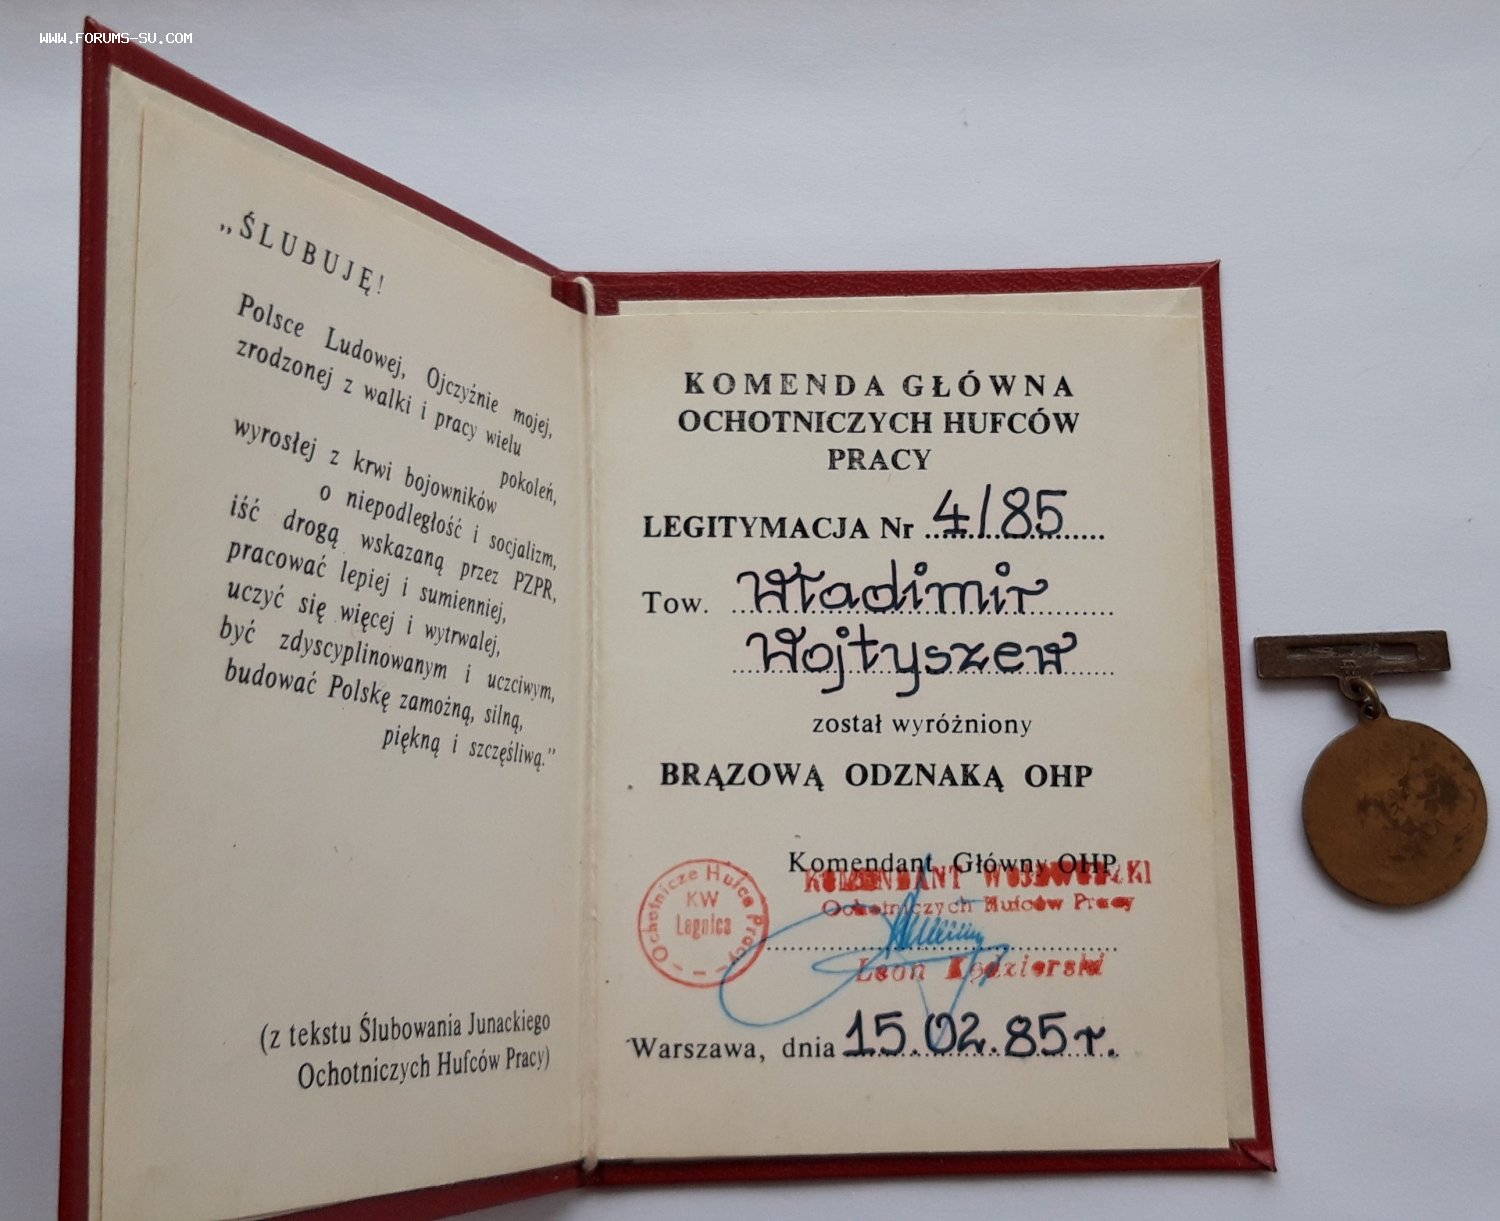 WWW.FORUMS-SU.COM
„ŚLUBUJĘ!
Polsce Ludowej, Ojczyźnie mojej,
zrodzonej z walki i pracy wielu
pokoleń,
wyrosłej z krwi bojowników
o niepodległość i socjalizm,
iść drogą wskazaną przez PZPR,
pracować lepiej i sumienniej,
uczyć się więcej i wytrwalej,
być zdyscyplinowanym i uczciwym,
budować Polskę zamożną, silną,
piękną i szczęśliwą.”
(z tekstu Ślubowania Junackiego
Ochotniczych Hufców Pracy)
KOMENDA GŁÓWNA
OCHOTNICZYCH HUFCÓW
PRACY
LEGITYMACJA Nr 4/85
Tow. Władimir
Wojtyszew
został wyróżniony
BRĄZOWĄ ODZNAKĄ OHP
Komendant Główny OHP
KOMENDANT WOJEWÓDZKI
Ochotniczych Hufców Pracy
Ochotnicze Hufce Pracy
KW
Legnica
Leon Kędzierski
Warszawa, dnia 15.02.85r.